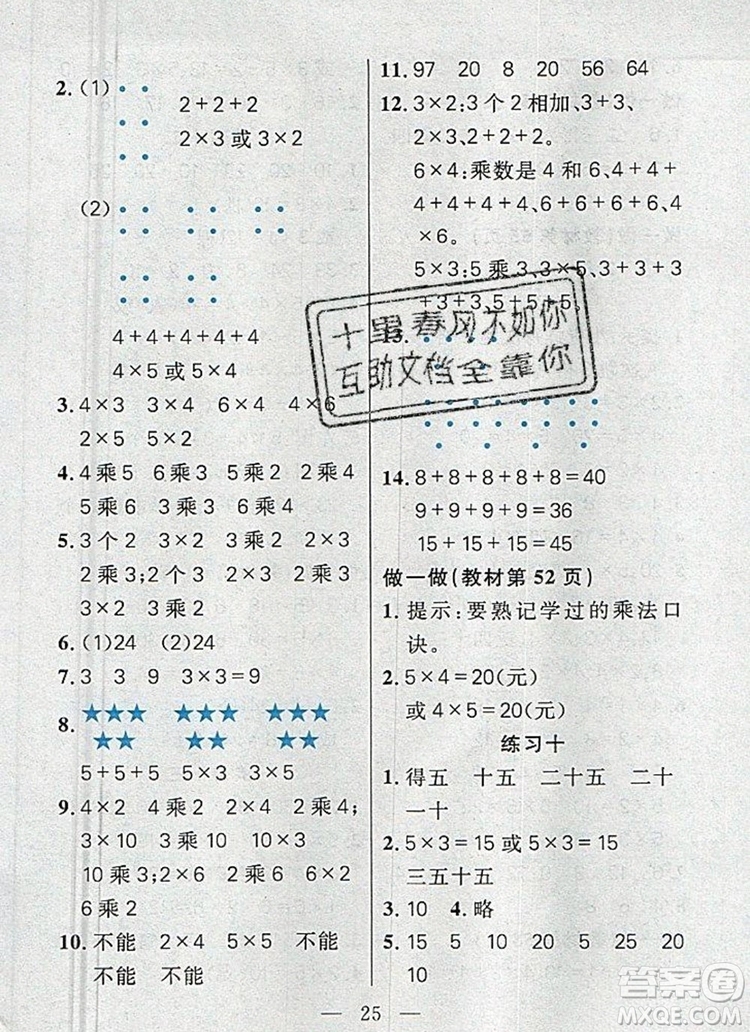 2. (1)
2+2+2
2×3或3×2
(2)
4+4+4+4+4
4×5或5×4
3. 4×3 3×4 6×4 4×6
2×5 5×2
4. 4乘5 6乘3 5乘2 2乘4
5乘6 3乘6 3乘3 3乘4
5. 3个2 2乘3 3乘2 2×3
2乘3;2个3 2乘3
3×2 2×3 3乘2
6. (1)24 (2)24
7. 3 3 9 3×3=9
8.
5+5+5 5×3 3×5
9. 4×2 4乘2 2×4 2乘4;
3×10 3乘10 10×3
10乘3;2×6 2乘6 6×2
6乘2
10. 不能 2×4 5×5 不能
不能 不能
11. 97 20 8 20 56 64
12. 3×2:3个2相加、3+3、
2×3、2+2+2。
6×4:乘数是4和6、4+4+
4+4+4+4、6+6+6+6、4
×6。
5×3:5乘3、3×5、3+3+3
+3+3、5+5+5。
十里春风不如你
互助文档全靠你
13.
14. 8+8+8+8+8=40
9+9+9+9=36
15+15+15=45
做一做(教材第52页)
1. 提示:要熟记学过的乘法口
诀。
2. 5×4=20(元)
或4×5=20(元)
练习十
1. 得五 十五 二十五 二十
一十
2. 5×3=15或5×3=15
三五十五
3. 10 4. 略
5. 15 5 10 20 5 25
10
25
答案圈
MXQE.COM